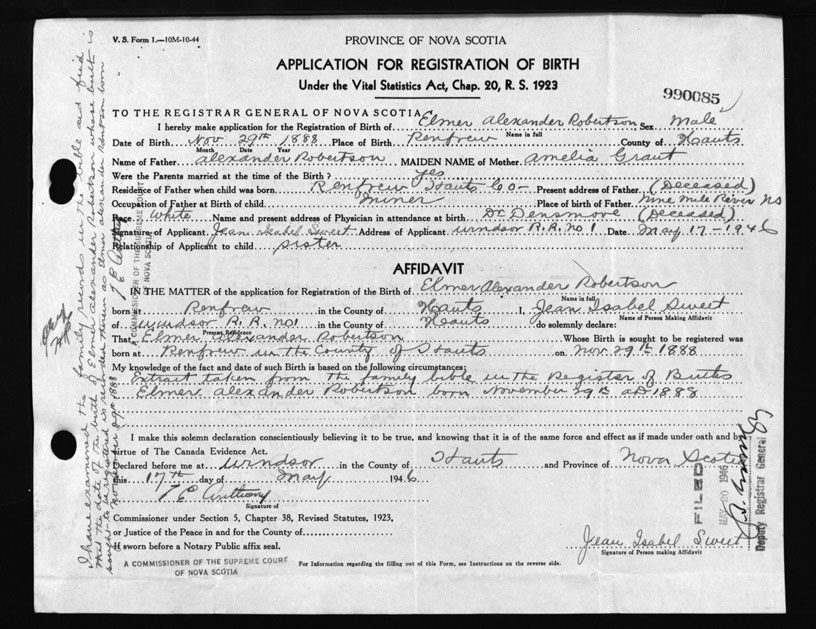 V. S. Form 1.—10M-10-44
PROVINCE OF NOVA SCOTIA
APPLICATION FOR REGISTRATION OF BIRTH
Under the Vital Statistics Act, Chap. 20, R. S. 1923
990085
TO THE REGISTRAR GENERAL OF NOVA SCOTIA
I hereby make application for the Registration of Birth of Elmer Alexander Robertson, Sex Male
Name in full
Date of Birth Nov 29th 1888 Place of Birth Renfrew County of Hants
Month Date Year
Name of Father Alexander Robertson MAIDEN NAME of Mother Amelia Grant
Were the Parents married at the time of the Birth? yes
Residence of Father when child was born Renfrew Hants Co- Present address of Father (Deceased)
Occupation of Father at Birth of child Miner Place of birth of Father Nine Mile River NS
Race White Name and present address of Physician in attendance at birth Dr Densmore (Deceased)
Signature of Applicant Jean Isabel Sweet Address of Applicant Windsor R.R. no 1 Date May 17-1946
Relationship of Applicant to child sister
AFFIDAVIT
IN THE MATTER of the application for Registration of the Birth of Elmer Alexander Robertson
Name in full
born at Renfrew in the County of Hants I, Jean Isabel Sweet
Name of Person Making Affidavit
of Windsor R.R. no1 in the County of Hants do solemnly declare:
Present Residence
That Elmer Alexander Robertson Whose Birth is sought to be registered was
born at Renfrew in the County of Hants on Nov 29th 1888
My knowledge of the fact and date of such Birth is based on the following circumstances:
Extract taken from the family bible in the Register of Births
Elmer Alexander Robertson born November 29th AD 1888
I make this solemn declaration conscientiously believing it to be true, and knowing that it is of the same force and effect as if made under oath and by
virtue of The Canada Evidence Act.
Declared before me at Windsor in the County of Hants and Province of Nova Scotia
this 17th day of May 1946
T E Anthony
Signature of
Commissioner under Section 5, Chapter 38, Revised Statutes, 1923,
or Justice of the Peace in and for the County of
If sworn before a Notary Public affix seal.
Jean Isabel Sweet
Signature of Person making Affidavit
A COMMISSIONER OF THE SUPREME COURT
OF NOVA SCOTIA
For Information regarding the filling out of this Form, see Instructions on the reverse side.
I have examined the family records in the bible and find
that the date of the birth of Elmer Alexander Robertson whose birth is
sought to be registered is recorded therein as Elmer Alexander Robertson born
November 29th 1888
T E Anthony
A COMMISSIONER OF THE SUPREME COURT
OF NOVA SCOTIA
FILED
MAY 20 1946
Deputy Registrar General